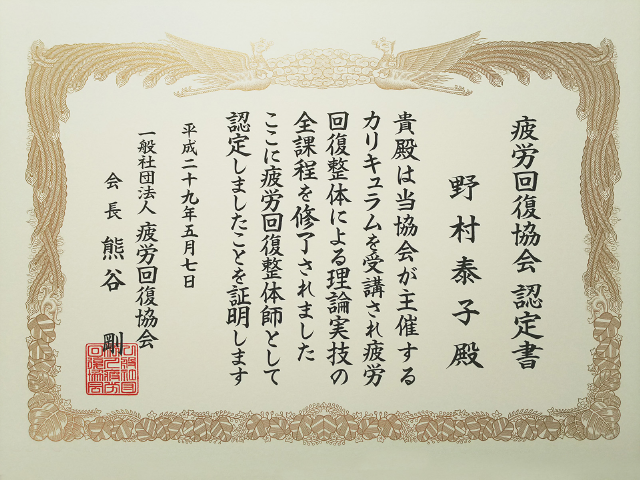 疲労回復協会 認定書
野村泰子 殿
貴殿は当協会が主催する
カリキュラムを受講され疲労
回復整体による理論実技の
全課程を修了されました
ここに疲労回復整体師として
認定しましたことを証明します
平成二十九年五月七日
一般社団法人 疲労回復協会
会長 熊谷 剛